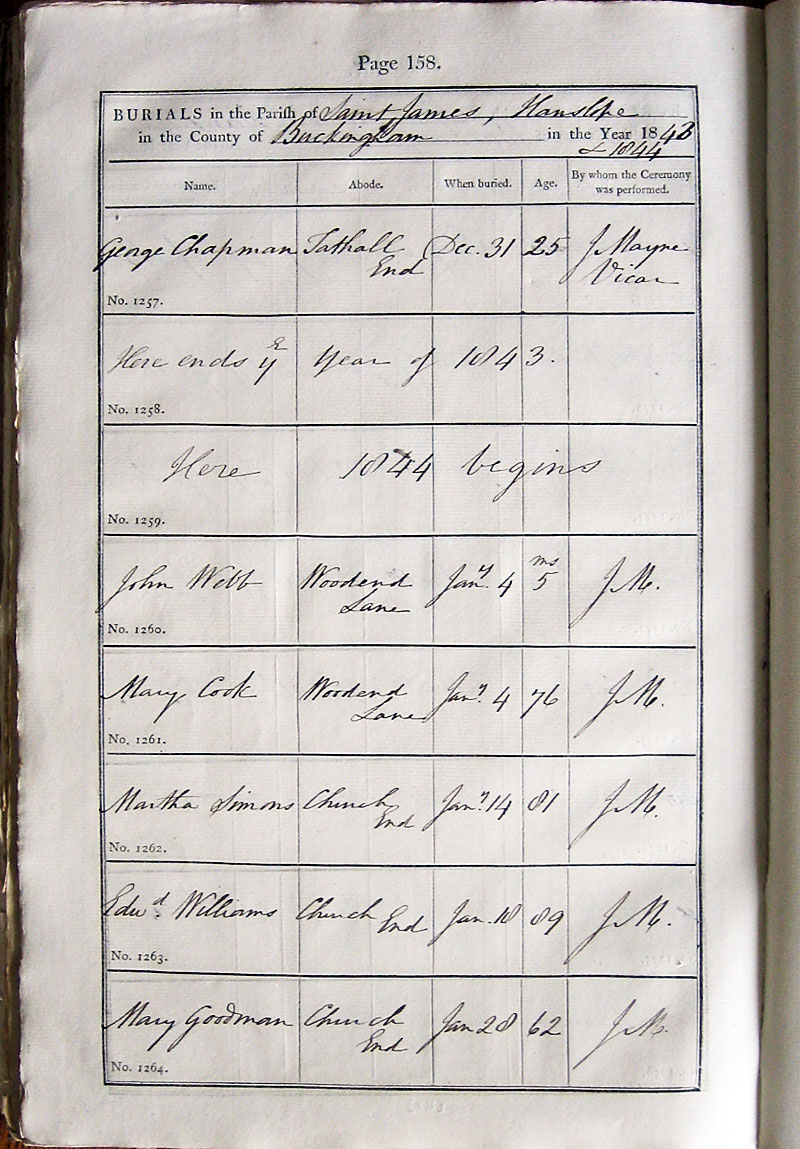 Page 158.
BURIALS in the Parish of Saint James, Hanslope
in the County of Buckingham in the Year 1843
& 1844
Name. Abode. When buried. Age. By whom the Ceremony was performed.
George Chapman Tathall End Dec. 31 25 J Mayne Vicar
No. 1257.
Here ends yE Year of 1843.
No. 1258.
Here 1844 begins
No. 1259.
John Webb Woodend Lane Jany. 4 ms 5 J M.
No. 1260.
Mary Cook Woodend Lane Jany. 4 76 J M.
No. 1261.
Martha Simons Church End Jany. 14 81 J M.
No. 1262.
Edwd. Williams Church End Jan. 18 89 J M.
No. 1263.
Mary Goodman Church End Jan 28 62 J M.
No. 1264.